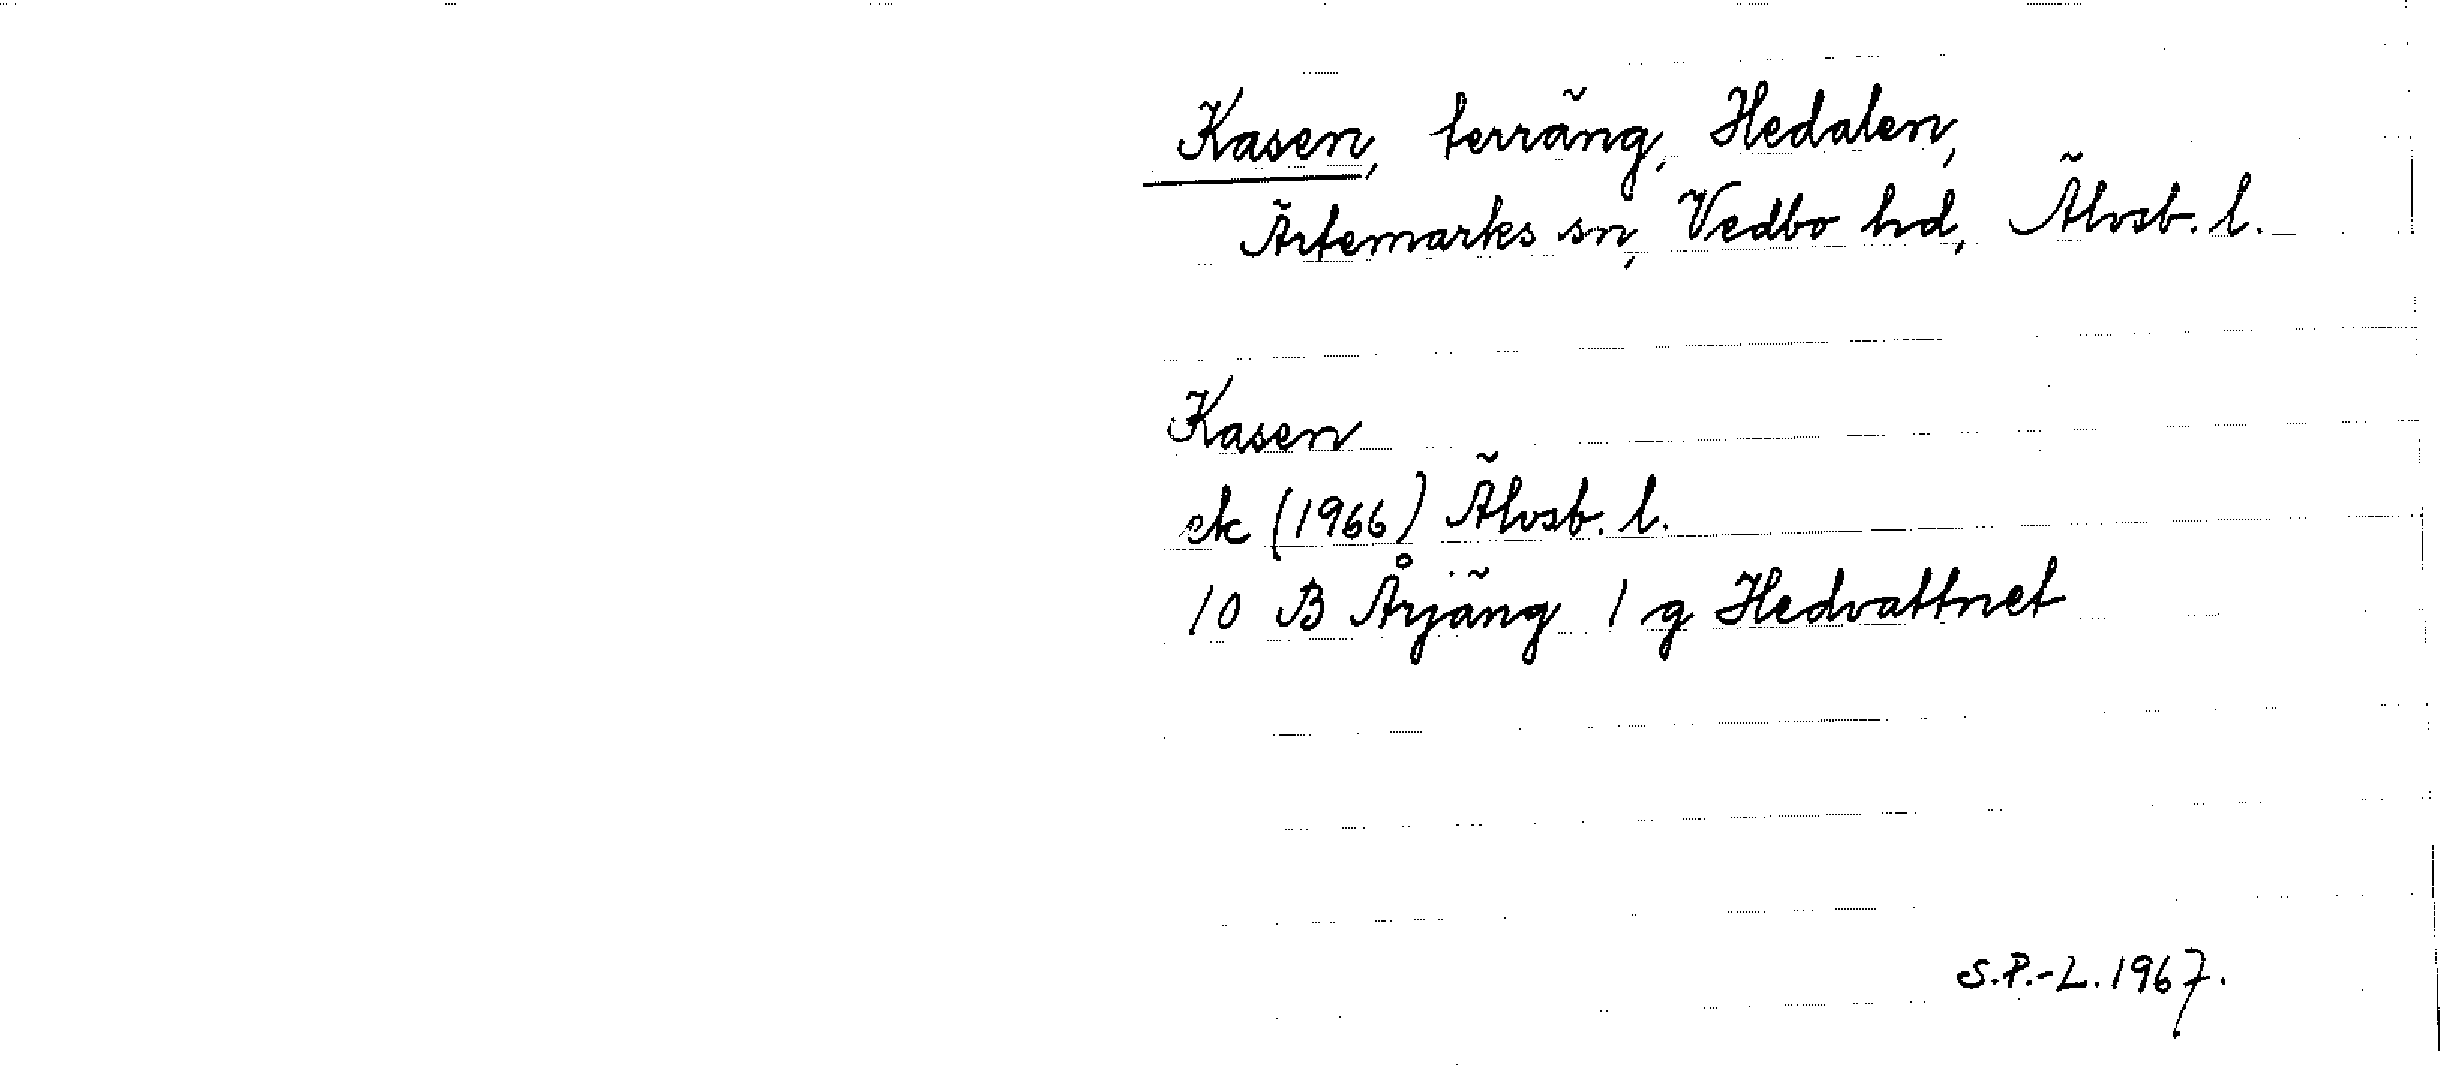 Kasen, terräng, Hedalen,
Ärtemarks sn, Vedbo hd, Älvsb. l.
Kasen
ek (1966) Älvsb. l.
10 B Årjäng 1 g Hedvattnet
S.P.-L. 1967.